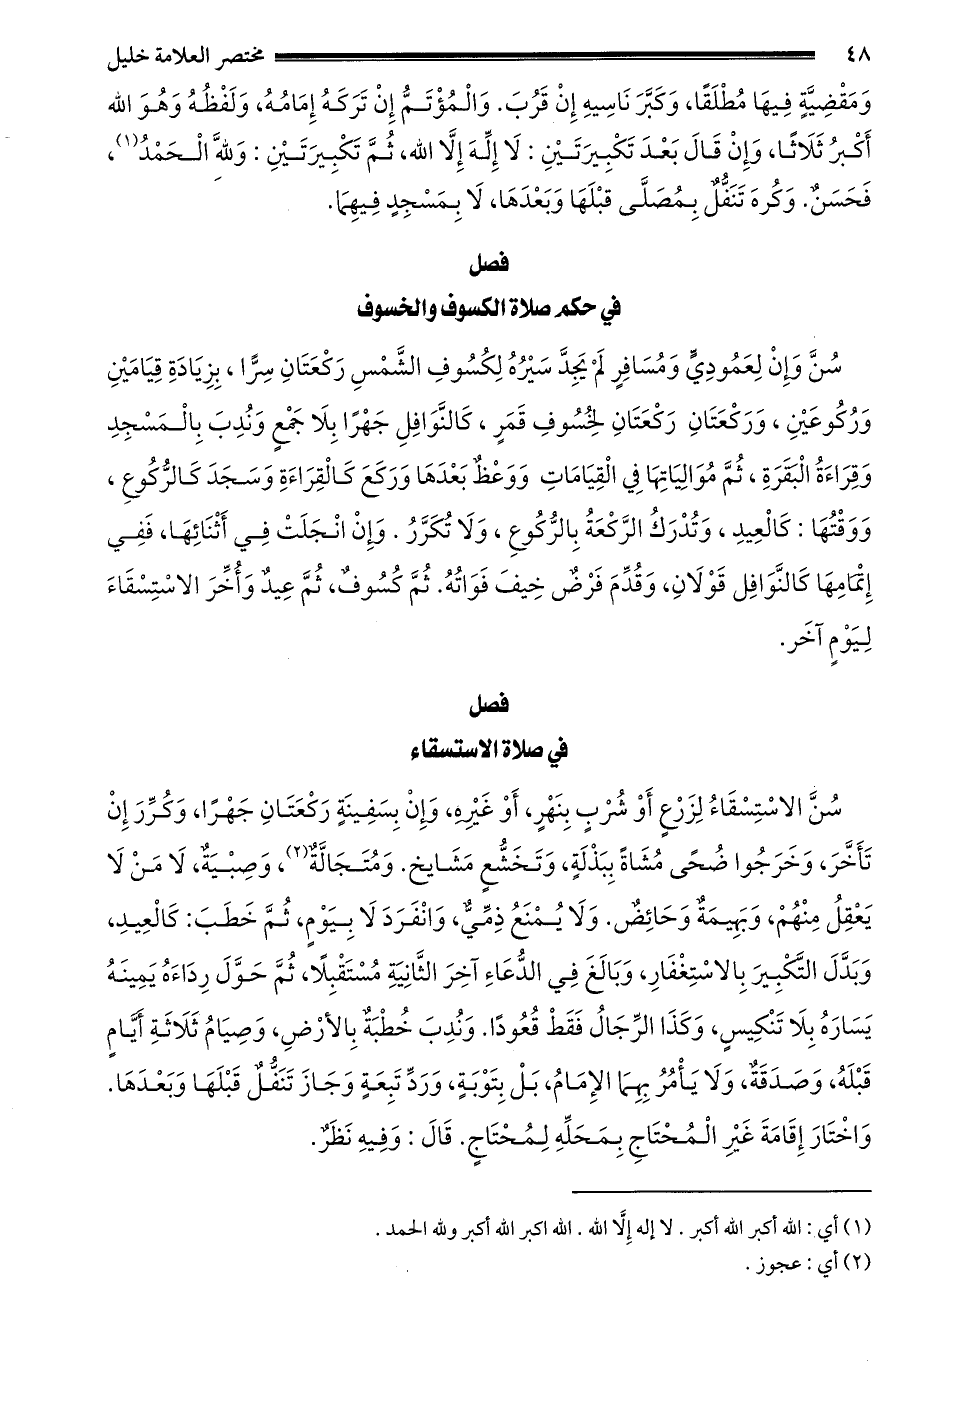 ٤٨ مختصر العلامة خليل
وَمَقْضِيَّةٍ فِيهَا مُطْلَقًا، وَكَبَّرَ نَاسِيهِ إِنْ قَرُبَ. وَالْمُؤْتَمُّ إِنْ تَرَكَهُ إِمَامُهُ، وَلَفْظُهُ وَهُوَ الله
أَكْبرُ ثَلَاثًا، وَإِنْ قَالَ بَعْدَ تَكْبِيرَتَيْنِ : لَا إِلَهَ إِلَّا الله، ثُمَّ تَكْبِيرَتَيْنِ : وَللهِ الْحَمْدُ(١)،
فَحَسَنٌ. وَكُرِهَ تَنَفُّلٌ بِمُصَلَّى قَبْلَهَا وَبَعْدَهَا، لَا بِمَسْجِدٍ فِيهِمَا.
فصل
في حكم صلاة الكسوف والخسوف
سُنَّ وَإِنْ لِعَمُودِيٍّ وَمُسَافِرٍ لَمْ يَجِدَّ سَيْرُهُ لِكُسُوفِ الشَّمْسِ رَكْعَتَانِ سِرًّا ، بِزِيَادَةِ قِيَامَيْنِ
وَرُكُوعَيْنِ ، وَرَكْعَتَانِ رَكْعَتَانِ لِخُسُوفِ قَمَرٍ ، كَالنَّوَافِلِ جَهْرًا بِلَا جَمْعٍ وَنُدِبَ بِالْمَسْجِدِ
وَقِرَاءَةُ الْبَقَرَةِ ، ثُمَّ مُوَالِيَاتِهَا فِي الْقِيَامَاتِ وَوَعْظٌ بَعْدَهَا وَرَكَعَ كَالْقِرَاءَةِ وَسَجَدَ كَالرُّكُوعِ ،
وَوَقْتُهَا : كَالْعِيدِ ، وَتُدْرَكُ الرَّكْعَةُ بِالرُّكُوعِ ، وَلَا تُكَرَّرُ . وَإِنْ انْجَلَتْ فِي أَثْنَائِهَا، فَفِي
إِتْمَامِهَا كَالنَّوَافِلِ قَوْلَانِ، وَقُدِّمَ فَرْضٌ خِيفَ فَوَاتُهُ. ثُمَّ كُسُوفٌ، ثُمَّ عِيدٌ وَأُخِّرَ الاسْتِسْقَاءَ
لِيَوْمٍ آخَر.
فصل
في صلاة الاستسقاء
سُنَّ الاسْتِسْقَاءُ لِزَرْعٍ أَوْ شُرْبٍ بِنَهْرٍ، أَوْ غَيْرِهِ، وَإِنْ بِسَفِينَةٍ رَكْعَتَانِ جَهْرًا، وَكُرِّرَ إِنْ
تَأَخَّرَ، وَخَرَجُوا ضُحًى مُشَاةً بِبَذْلَةٍ، وَتَخَشُّعٍ مَشَايخ. وَمُتَجَالَّةٌ(٢)، وَصِبْيَةٌ، لَا مَنْ لَا
يَعْقِلُ مِنْهُمْ، وَبَهِيمَةٌ وَحَائِضٌ. وَلَا يُمْنَعُ ذِمِّيٌّ، وَانْفَرَدَ لَا بِيَوْمٍ، ثُمَّ خَطَبَ: كَالْعِيدِ،
وَبَدَّلَ التَّكْبِيرَ بِالاسْتِغْفَارِ، وَبَالَغَ فِي الدُّعَاءِ آخِرَ الثَّانِيَةِ مُسْتَقْبِلًا، ثُمَّ حَوَّلَ رِدَاءَهُ يَمِينَهُ
يَسَارَهُ بِلَا تَنْكِيسٍ، وَكَذَا الرِّجَالُ فَقَطْ قُعُودًا. وَنُدِبَ خُطْبَةٌ بِالأَرْضِ، وَصِيَامُ ثَلَاثَةِ أَيَّامٍ
قَبْلَهُ، وَصَدَقَةٌ، وَلَا يَأْمُرُ بِهِمَا الإِمَامُ، بَلْ بِتَوْبَةٍ، وَرَدِّ تَبِعَةٍ وَجَازَ تَنَفُّلٌ قَبْلَهَا وَبَعْدَهَا.
وَاخْتَارَ إِقَامَةَ غَيْرِ الْمُحْتَاجِ بِمَحَلِّهِ لِمُحْتَاجٍ. قَالَ : وَفِيهِ نَظَرٌ.
(١) أي : الله أكبر الله أكبر . لا إله إلَّا الله . الله اكبر الله أكبر ولله الحمد .
(٢) أي : عجوز .